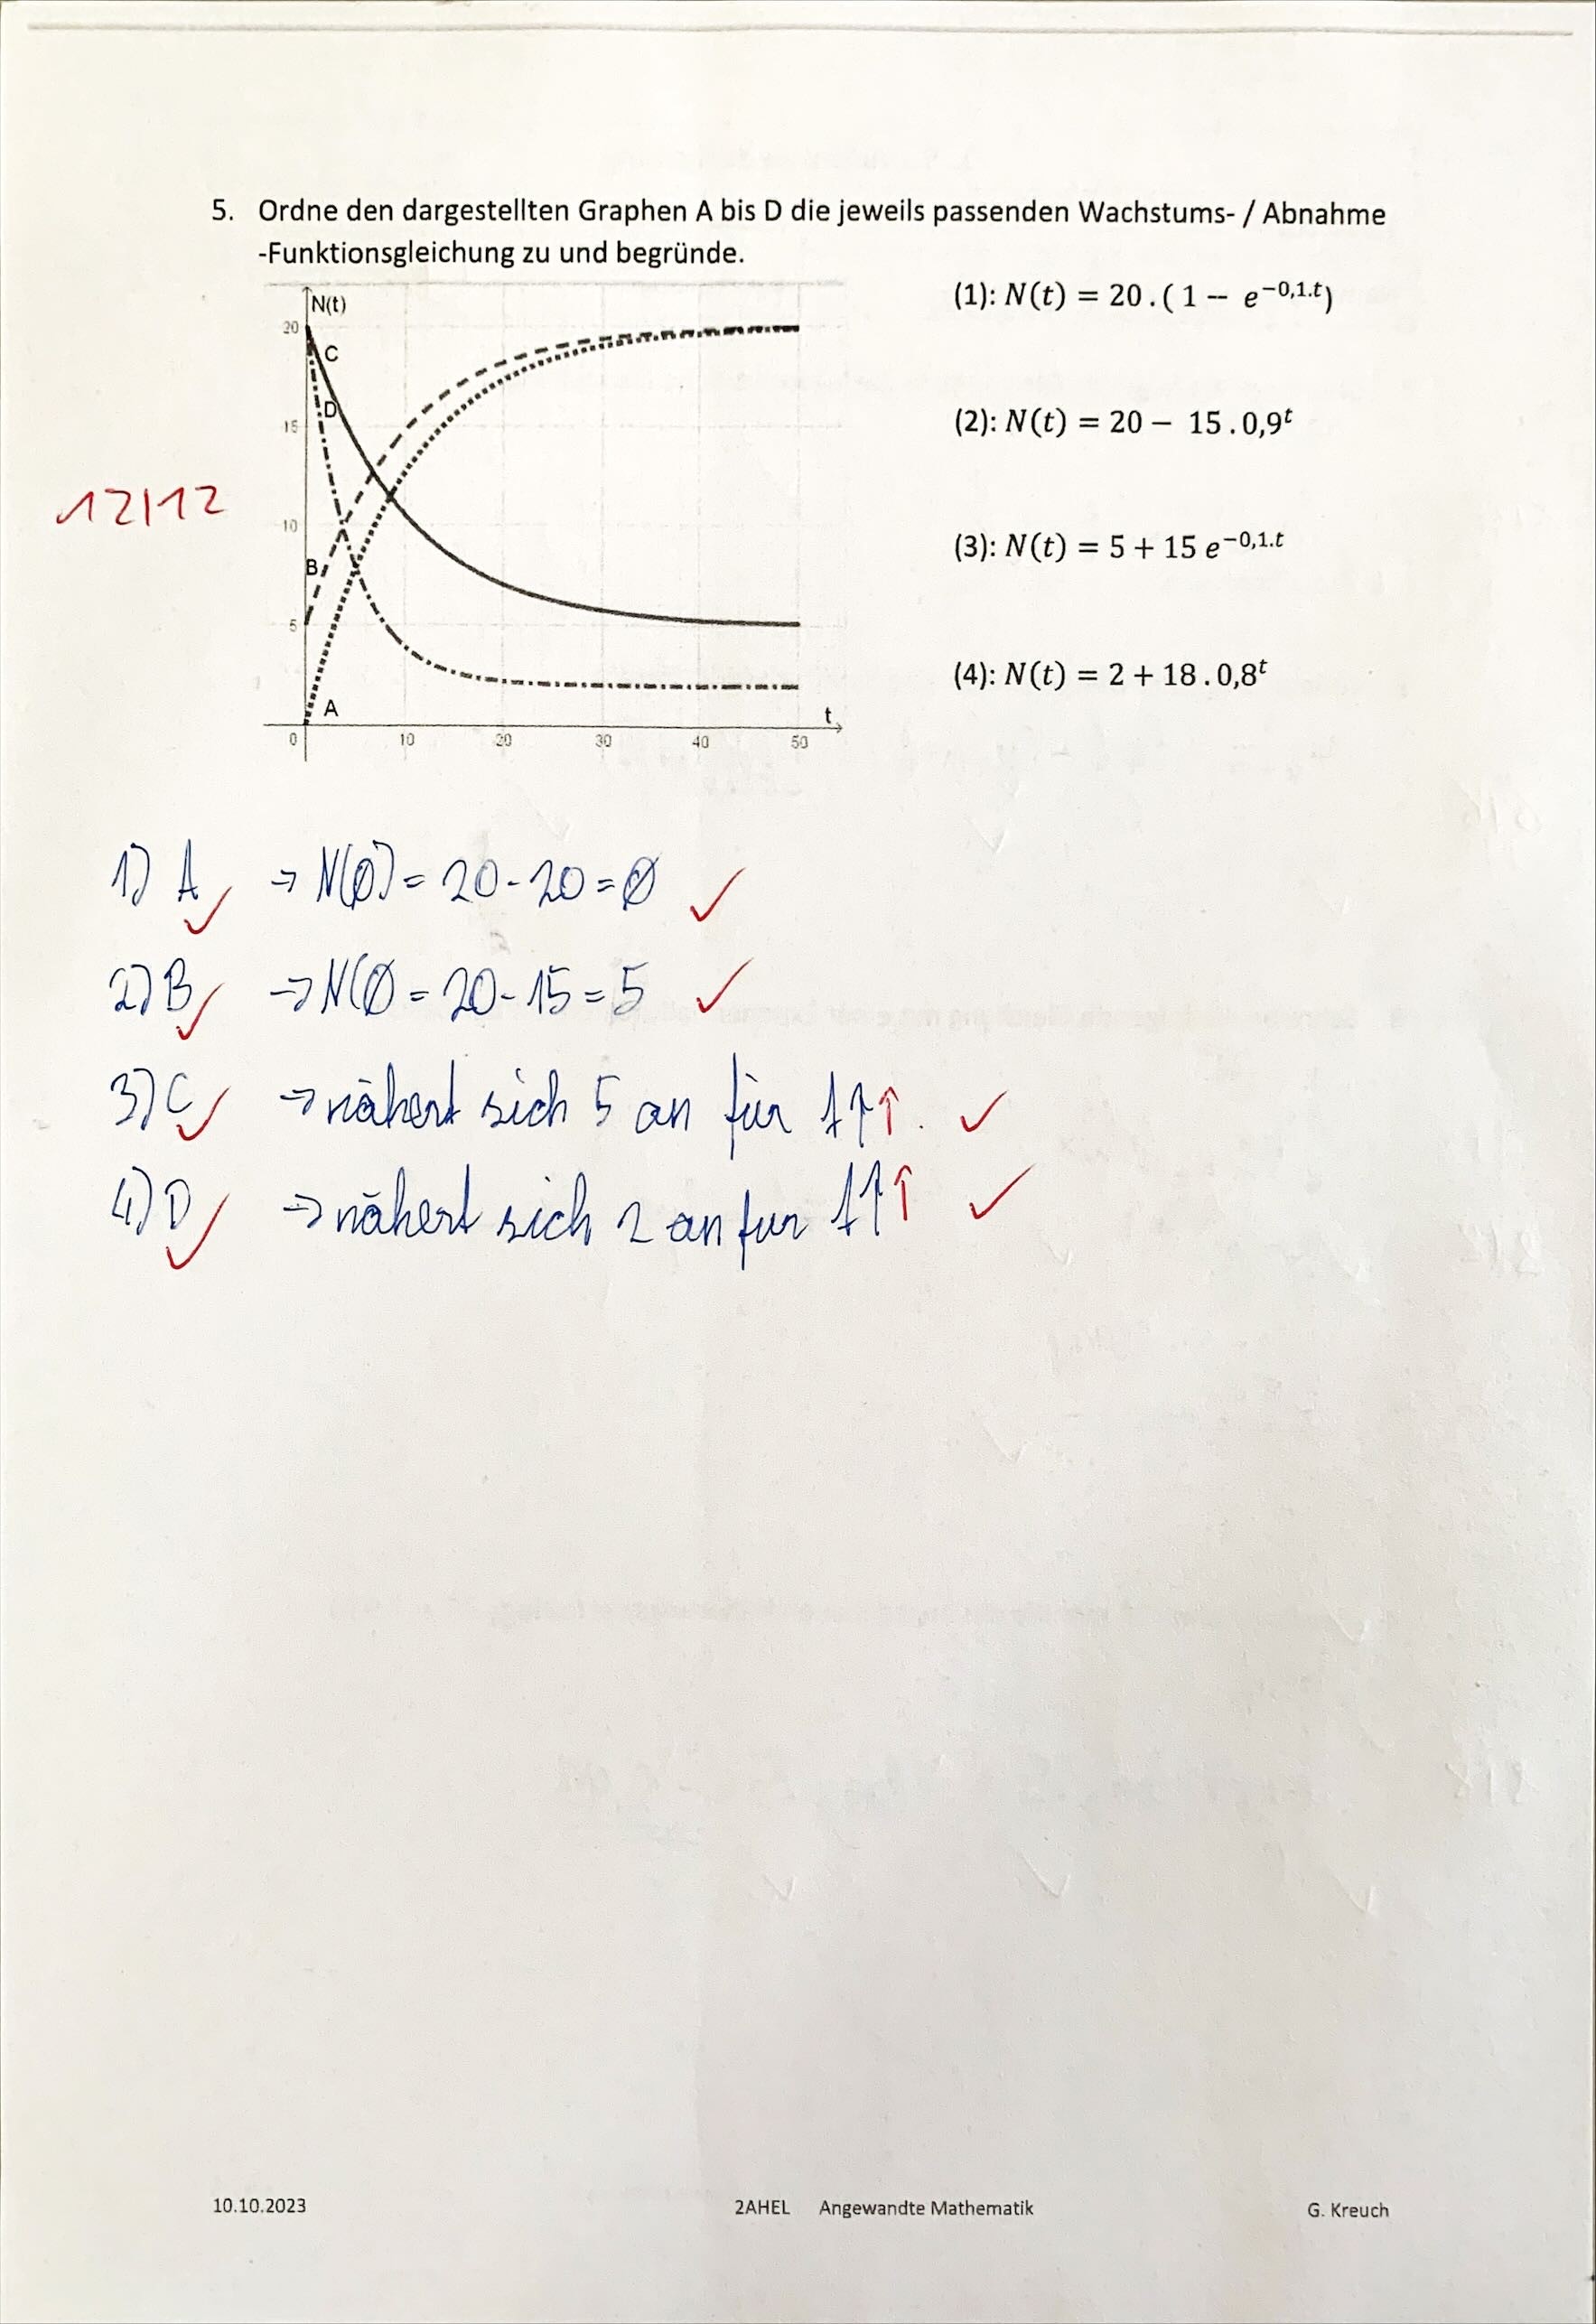 5. Ordne den dargestellten Graphen A bis D die jeweils passenden Wachstums- / Abnahme
-Funktionsgleichung zu und begründe.
N(t)
20
C
D
15
10
B
5
A
t
0 10 20 30 40 50
(1): N(t) = 20 . ( 1 -- e^{-0,1.t})
(2): N(t) = 20 − 15 . 0,9^t
(3): N(t) = 5 + 15 e^{−0,1.t}
(4): N(t) = 2 + 18 . 0,8^t
12/12
1) A ✓ → N(0) = 20 - 20 = 0 ✓
2) B ✓ → N(0 = 20 - 15 = 5 ✓
3) C ✓ → nähert sich 5 an für t↑↑. ✓
4) D ✓ → nähert sich 2 an fur t↑↑ ✓
10.10.2023 2AHEL Angewandte Mathematik G. Kreuch